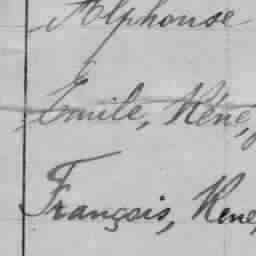 Alphonse
Emile, Réné,
François, Rene,